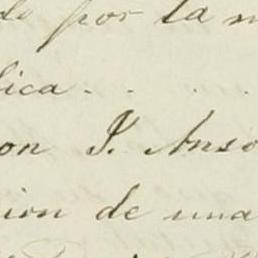 do por la m
lica . . . .
on J. Anso
ion de una